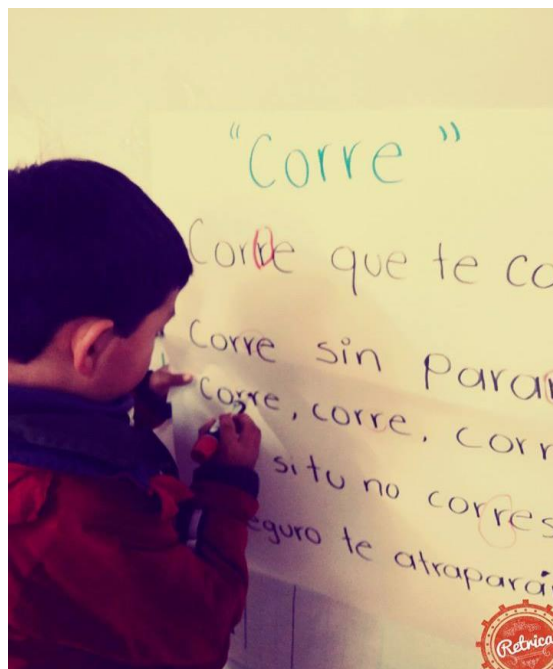 "Corre"
Corre que te co
Corre sin parar
corre, corre, corr
si tu no corres
eguro te atrapará
Retrica